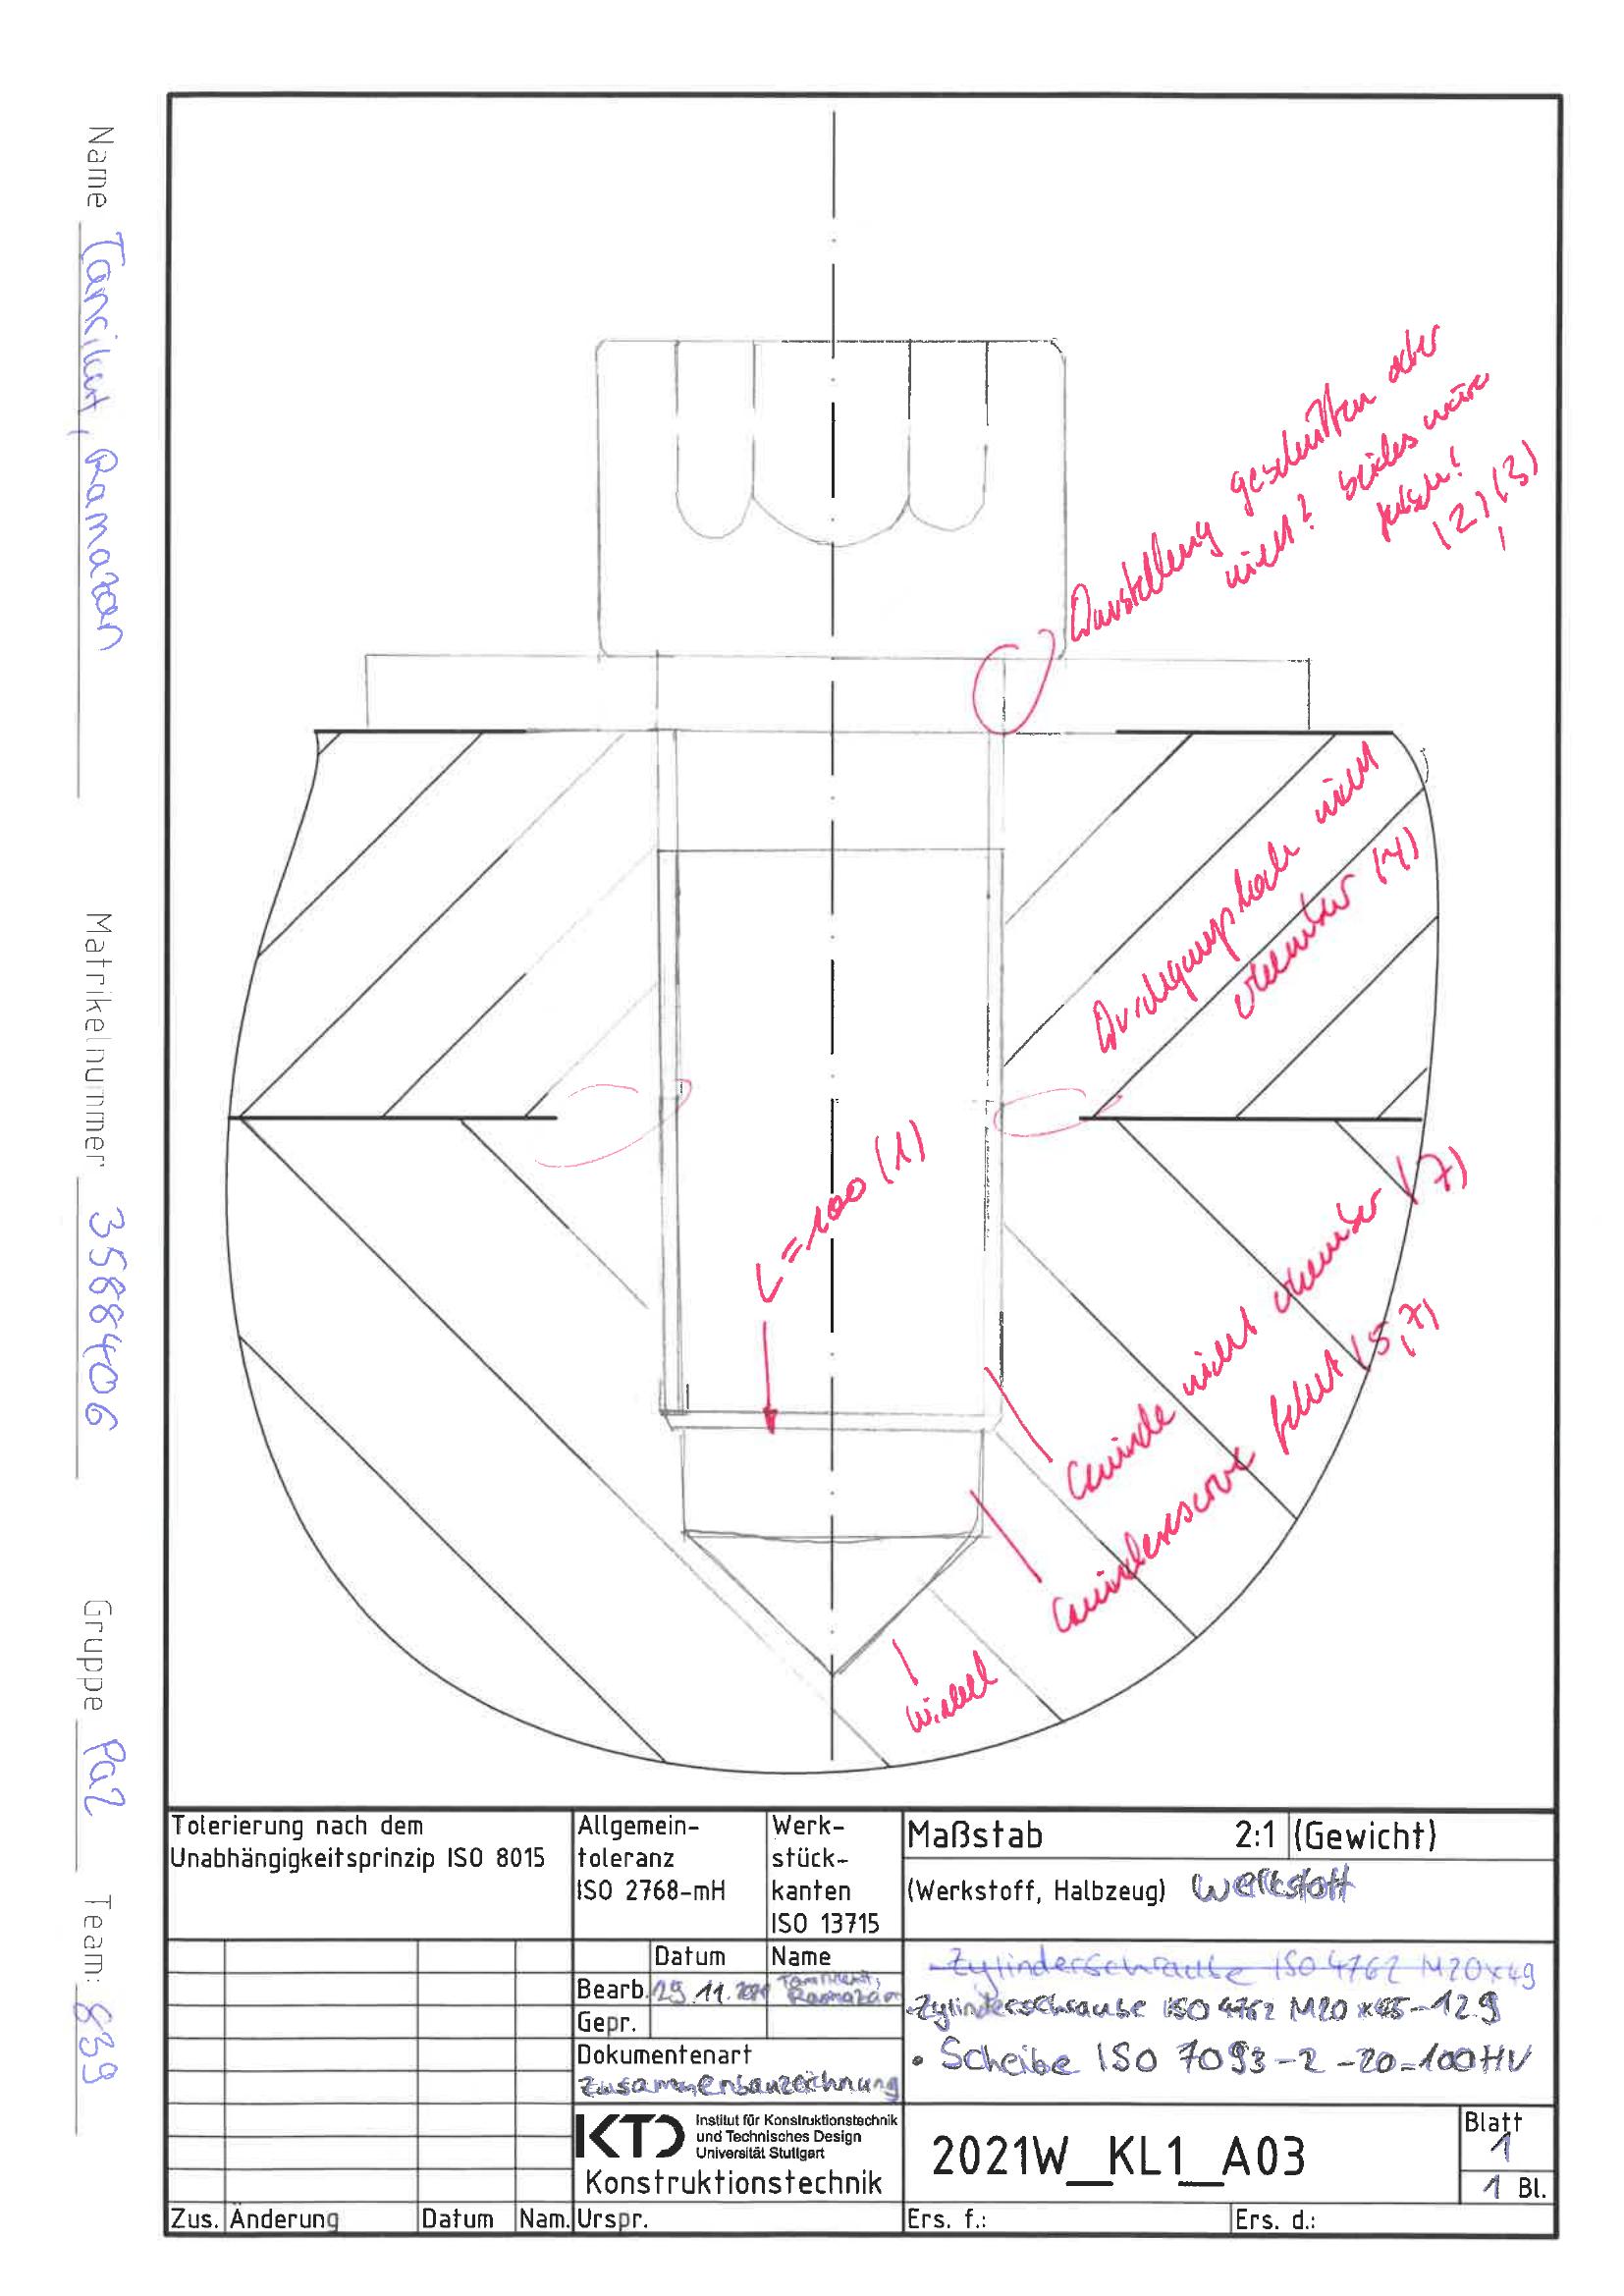 Name Tanrikut, Ramazan
Matrikelnummer 3588406
Gruppe Pa2 Team: 839
Darstellung geschnitten oder
nicht? beides wäre
falsch!
(2),(3)
Durchgangsloch nicht
erkennbar (4)
L=100 (1)
Gewinde nicht erkennbar (7)
fehlt (5,7)
Winkel
Tolerierung nach dem
Unabhängigkeitsprinzip ISO 8015
Allgemein-
toleranz
ISO 2768-mH
Werk-
stück-
kanten
ISO 13715
Maßstab 2:1 (Gewicht)
(Werkstoff, Halbzeug) Werkstoff
Datum Name
Bearb. 29.11.2021 Ramazan
Gepr.
Dokumentenart
Zusammenbauzeichnung
Zylinderschraube ISO 4762 M20x49
Zylinderschraube ISO 4762 M20 x -12.9
• Scheibe ISO 7093-2-20-100HV
KTD Institut für Konstruktionstechnik
und Technisches Design
Universität Stuttgart
Konstruktionstechnik
2021W_KL1_A03
Blatt
1
1 Bl.
Zus. Änderung Datum Nam. Urspr. Ers. f.: Ers. d.: